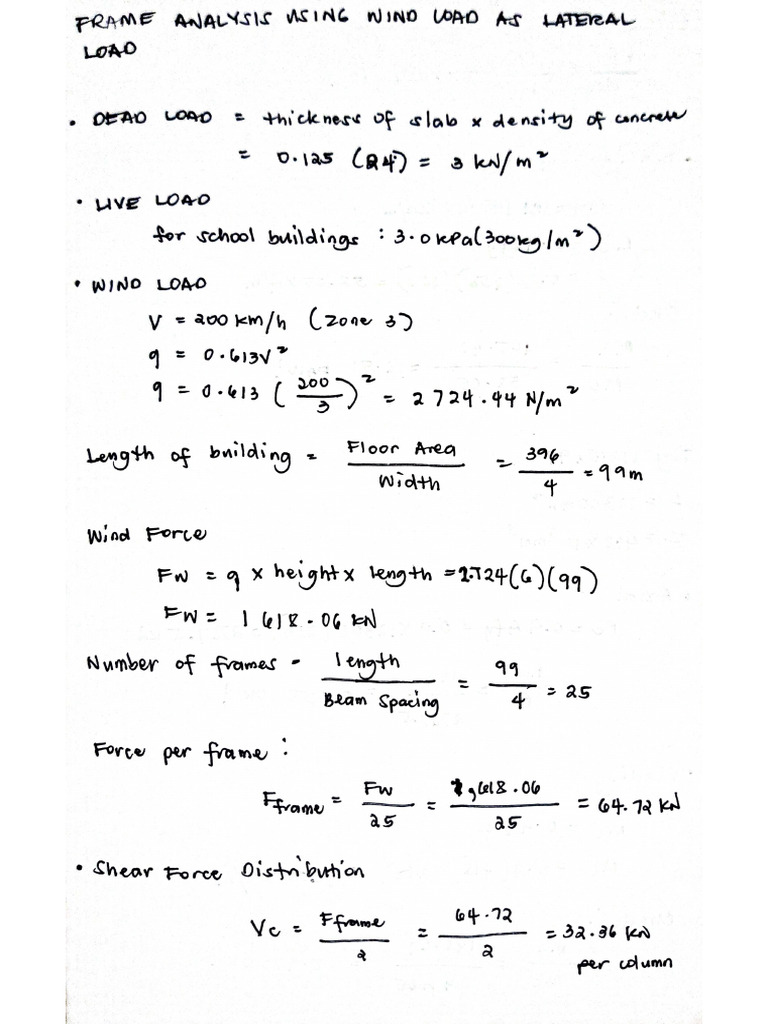 FRAME ANALYSIS USING WIND LOAD AS LATERAL
LOAD
• DEAD LOAD = thickness of slab x density of concrete
= 0.125 (24) = 3 kN/m²
• LIVE LOAD
for school buildings : 3.0 kPa (300kg/m²)
• WIND LOAD
V = 200 km/h (Zone 3)
q = 0.613V²
q = 0.613 (200/3)² = 2 724.44 N/m²
Length of building = Floor Area/Width = 396/4 = 99m
Wind Force
Fw = q x height x length = 2.724(6)(99)
Fw = 1 618.06 kN
Number of frames = length/Beam Spacing = 99/4 = 25
Force per frame :
Fframe = Fw/25 = 1,618.06/25 = 64.72 kN
• Shear Force Distribution
Vc = Fframe/2 = 64.72/2 = 32.36 kN
per column